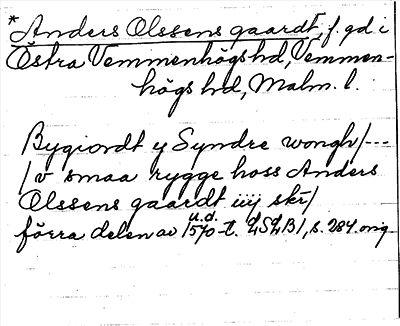 *Anders Olssens gaardt, f. gd. i
Östra Vemmenhögs hd, Vemmen-
högs hd, Malm. l.
Bygiordt y Syndre wongh/---
/v smaa rygge hoss Anders
Olssens gaardt iiij skr/
u.d.
förra delen av 1570-t. LSLB1, s. 284 orig.